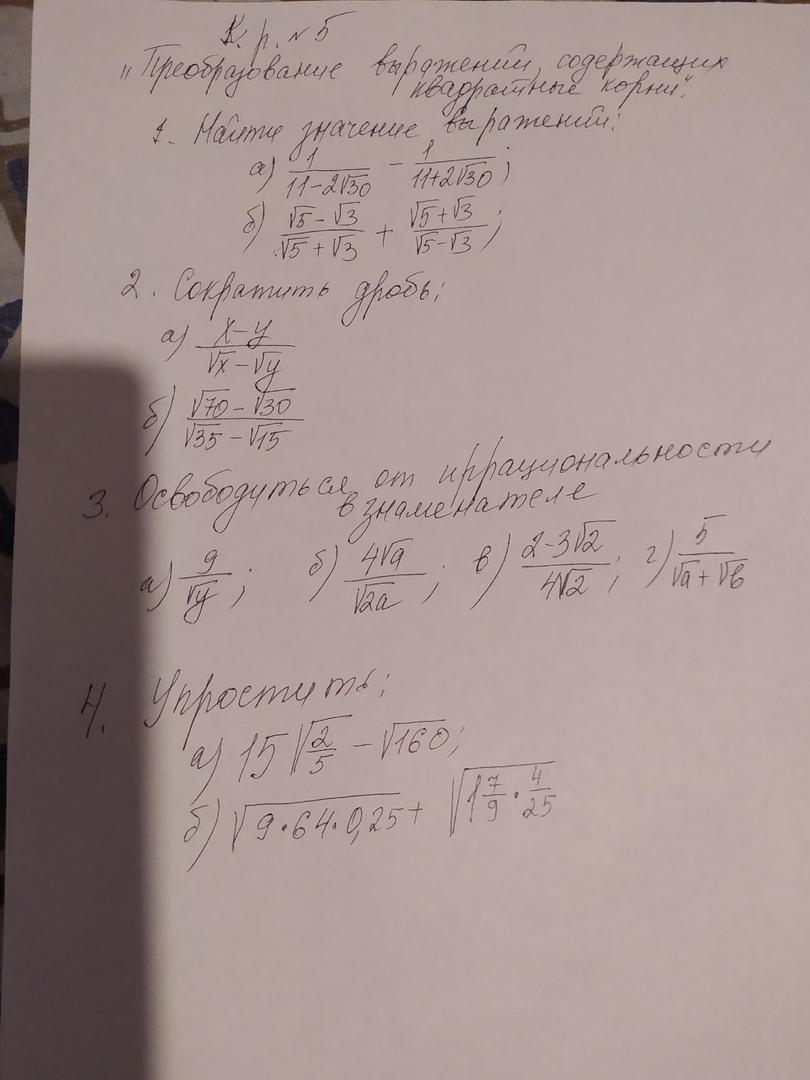 К. р. №5
"Преобразование выражений, содержащих
квадратные корни".
1. Найти значение выражений:
а) 1/(11-2√30) - 1/(11+2√30);
б) (√5-√3)/(√5+√3) + (√5+√3)/(√5-√3);
2. Сократить дробь:
а) (x-y)/(√x-√y)
б) (√70-√30)/(√35-√15)
3. Освободиться от иррациональности
в знаменателе
а) 9/√y; б) 4√a/√2a; в) (2-3√2)/(4√2); г) 5/(√a+√b)
4. Упростить:
а) 15√(2/5) - √160;
б) √(9·64·0,25) + √(1 7/9 · 4/25)